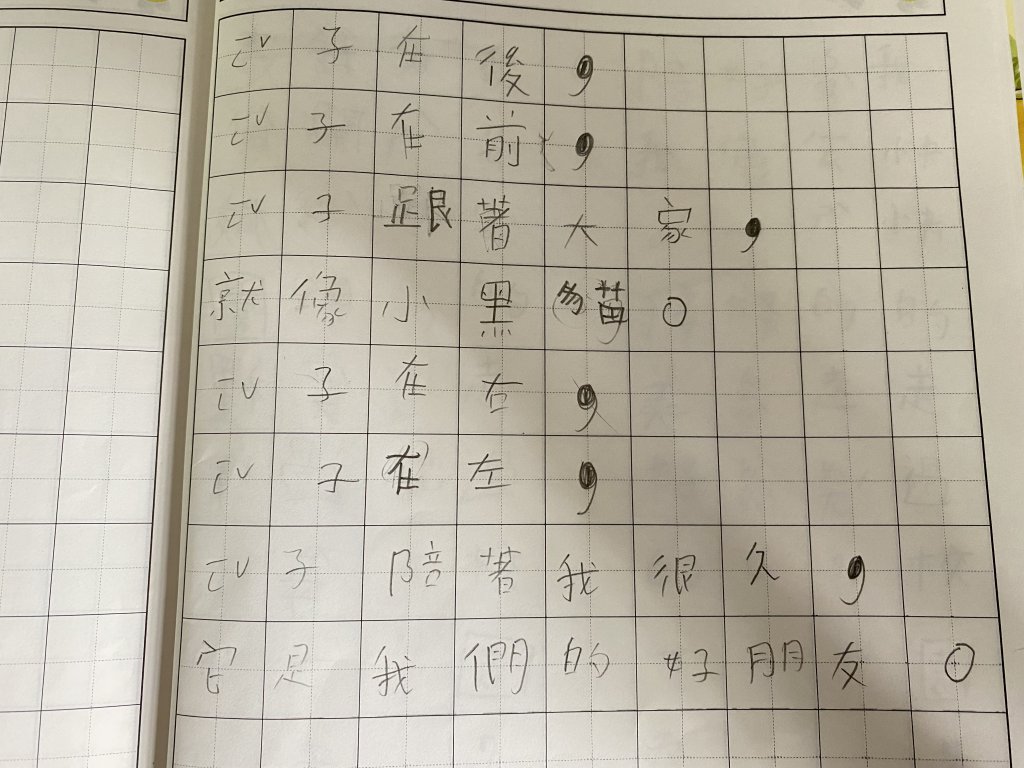 ㄧㄥˇ子在後，
ㄧㄥˇ子在前，
ㄧㄥˇ子跟著大家，
就像小黑貓。
ㄧㄥˇ子在右，
ㄧㄥˇ子在左，
ㄧㄥˇ子陪著我很久，
它是我們的好朋友。